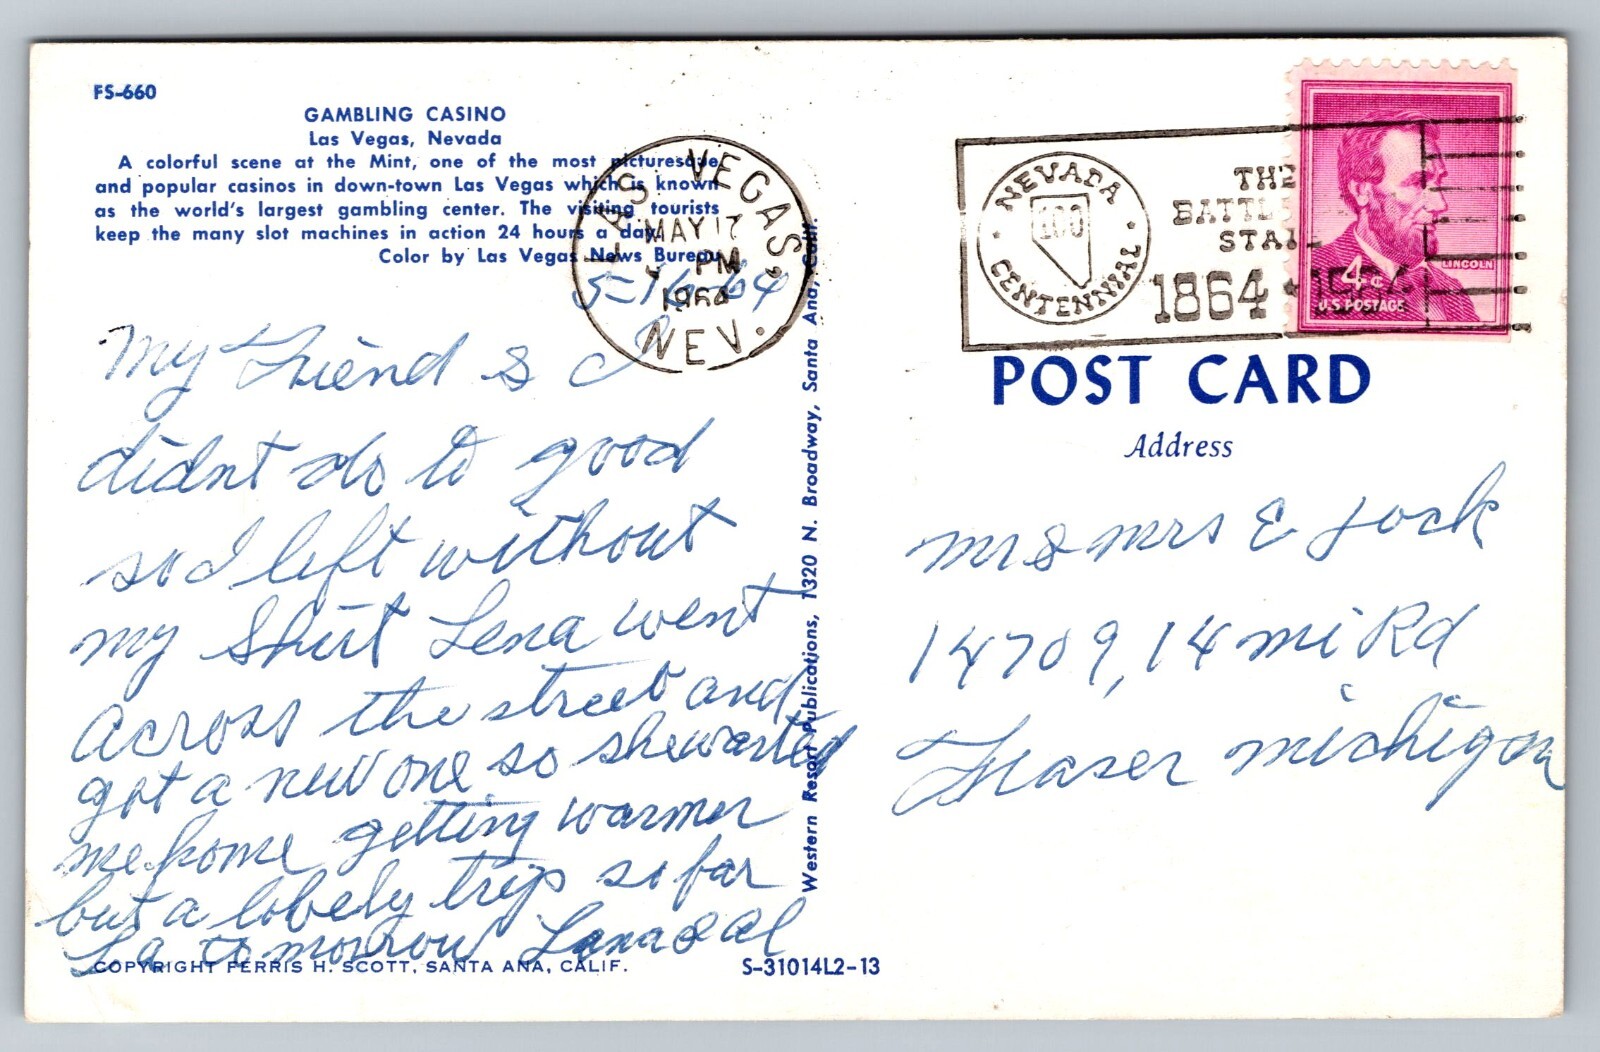 FS-660
GAMBLING CASINO
Las Vegas, Nevada
A colorful scene at the Mint, one of the most picturesque
and popular casinos in down-town Las Vegas which is known
as the world's largest gambling center. The visiting tourists
keep the many slot machines in action 24 hours a day.
Color by Las Vegas News Bureau
5-16-64
My Friend & I
didnt do to good
so I left without
my Shirt Lena went
across the street and
got a new one so she wanted
me home getting warmer
but a lovely trip so far
La tomorrow Lena & al
COPYRIGHT FERRIS H. SCOTT, SANTA ANA, CALIF.
S-31014L2-13
Western Resort Publications, 1320 N. Broadway, Santa Ana, Calif.
LAS VEGAS
MAY 17
PM
1964
NEV.
NEVADA
100
CENTENNIAL
THE
BATTLE
STA
1864
LINCOLN
4¢
U.S. POSTAGE
POST CARD
Address
mr & mrs E Jock
14709, 14 mi Rd
Fraser michigan